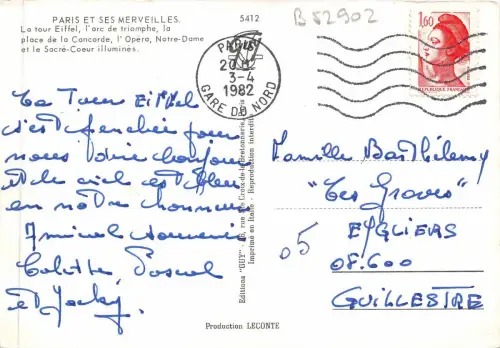 PARIS ET SES MERVEILLES.
La tour Eiffel, l'arc de triomphe, la
place de la Concorde, l'Opéra, Notre-Dame
et le Sacré-Coeur illuminés.
5412
B 52902
PARIS
3-4
1982
GARE DU NORD
1,60
REPUBLIQUE FRANÇAISE
La Tour Eiffel
s'est penchée pour
nous dire bonjour
et le ciel est bleu
en notre honneur
Amical souvenir
Colette, Pascal
et Jacky
Editions "GUY" - rue Ste Croix-de-la-Bretonnerie, Paris
Imprimé en Italie - Reproduction interdite
Famille Barthélemy
"Les Graves"
EYGLIERS
05
08.600
GUILLESTRE
Production LECONTE